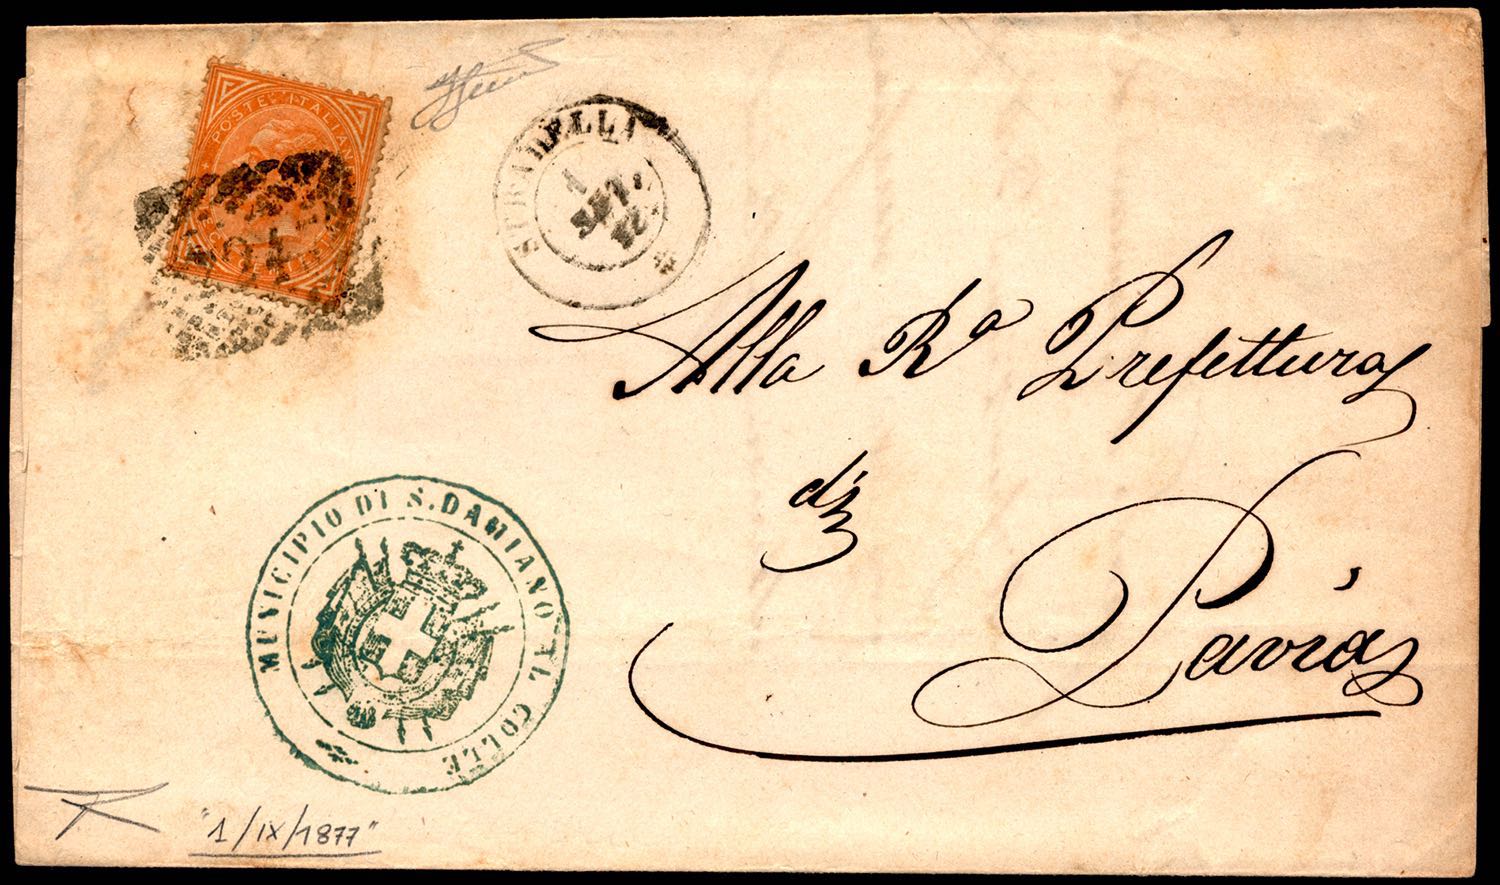 POSTE ITALIANE
STRADELLA
1
SET.
77
Alla Rᵃ Prefettura
di
Pavia
MUNICIPIO DI S. DAMIANO AL COLLE
"1/IX/1877"